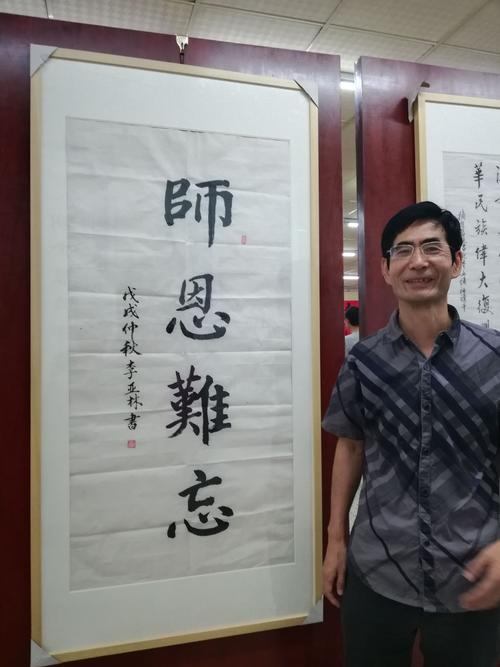 師恩難忘
戊戌仲秋李亚林書
華民族偉大復